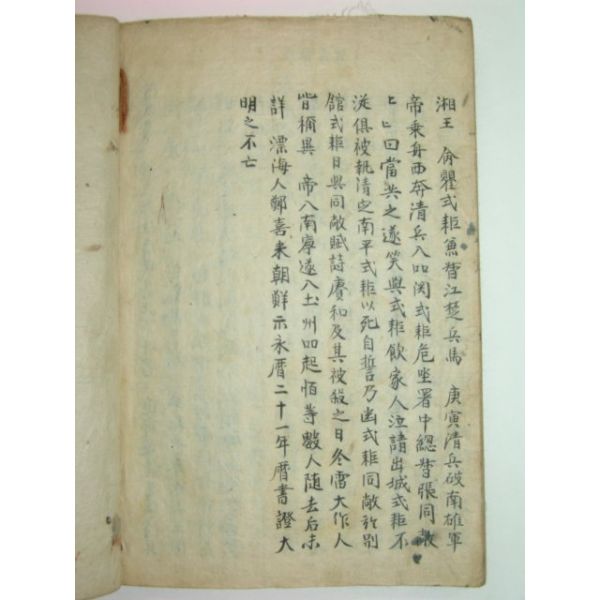 湘王 命瞿式耜兼督江楚兵馬 庚寅清兵破南雄軍
帝乘舟西奔清兵入 関式耜危坐署中總督張同敞
曰當共之遂笑與式耜飲家人泣請出城式耜不
從俱被執清 南平式耜以死自誓乃幽式耜同敞於別
館式耜日與同敵賦詩賡和及其被殺之日冬雷大作人
皆称異 帝入南寧遂入土州 起恒等數人随去后未
詳 漂海人鄭喜来朝鮮示永曆二十一年曆書證大
明之不亡